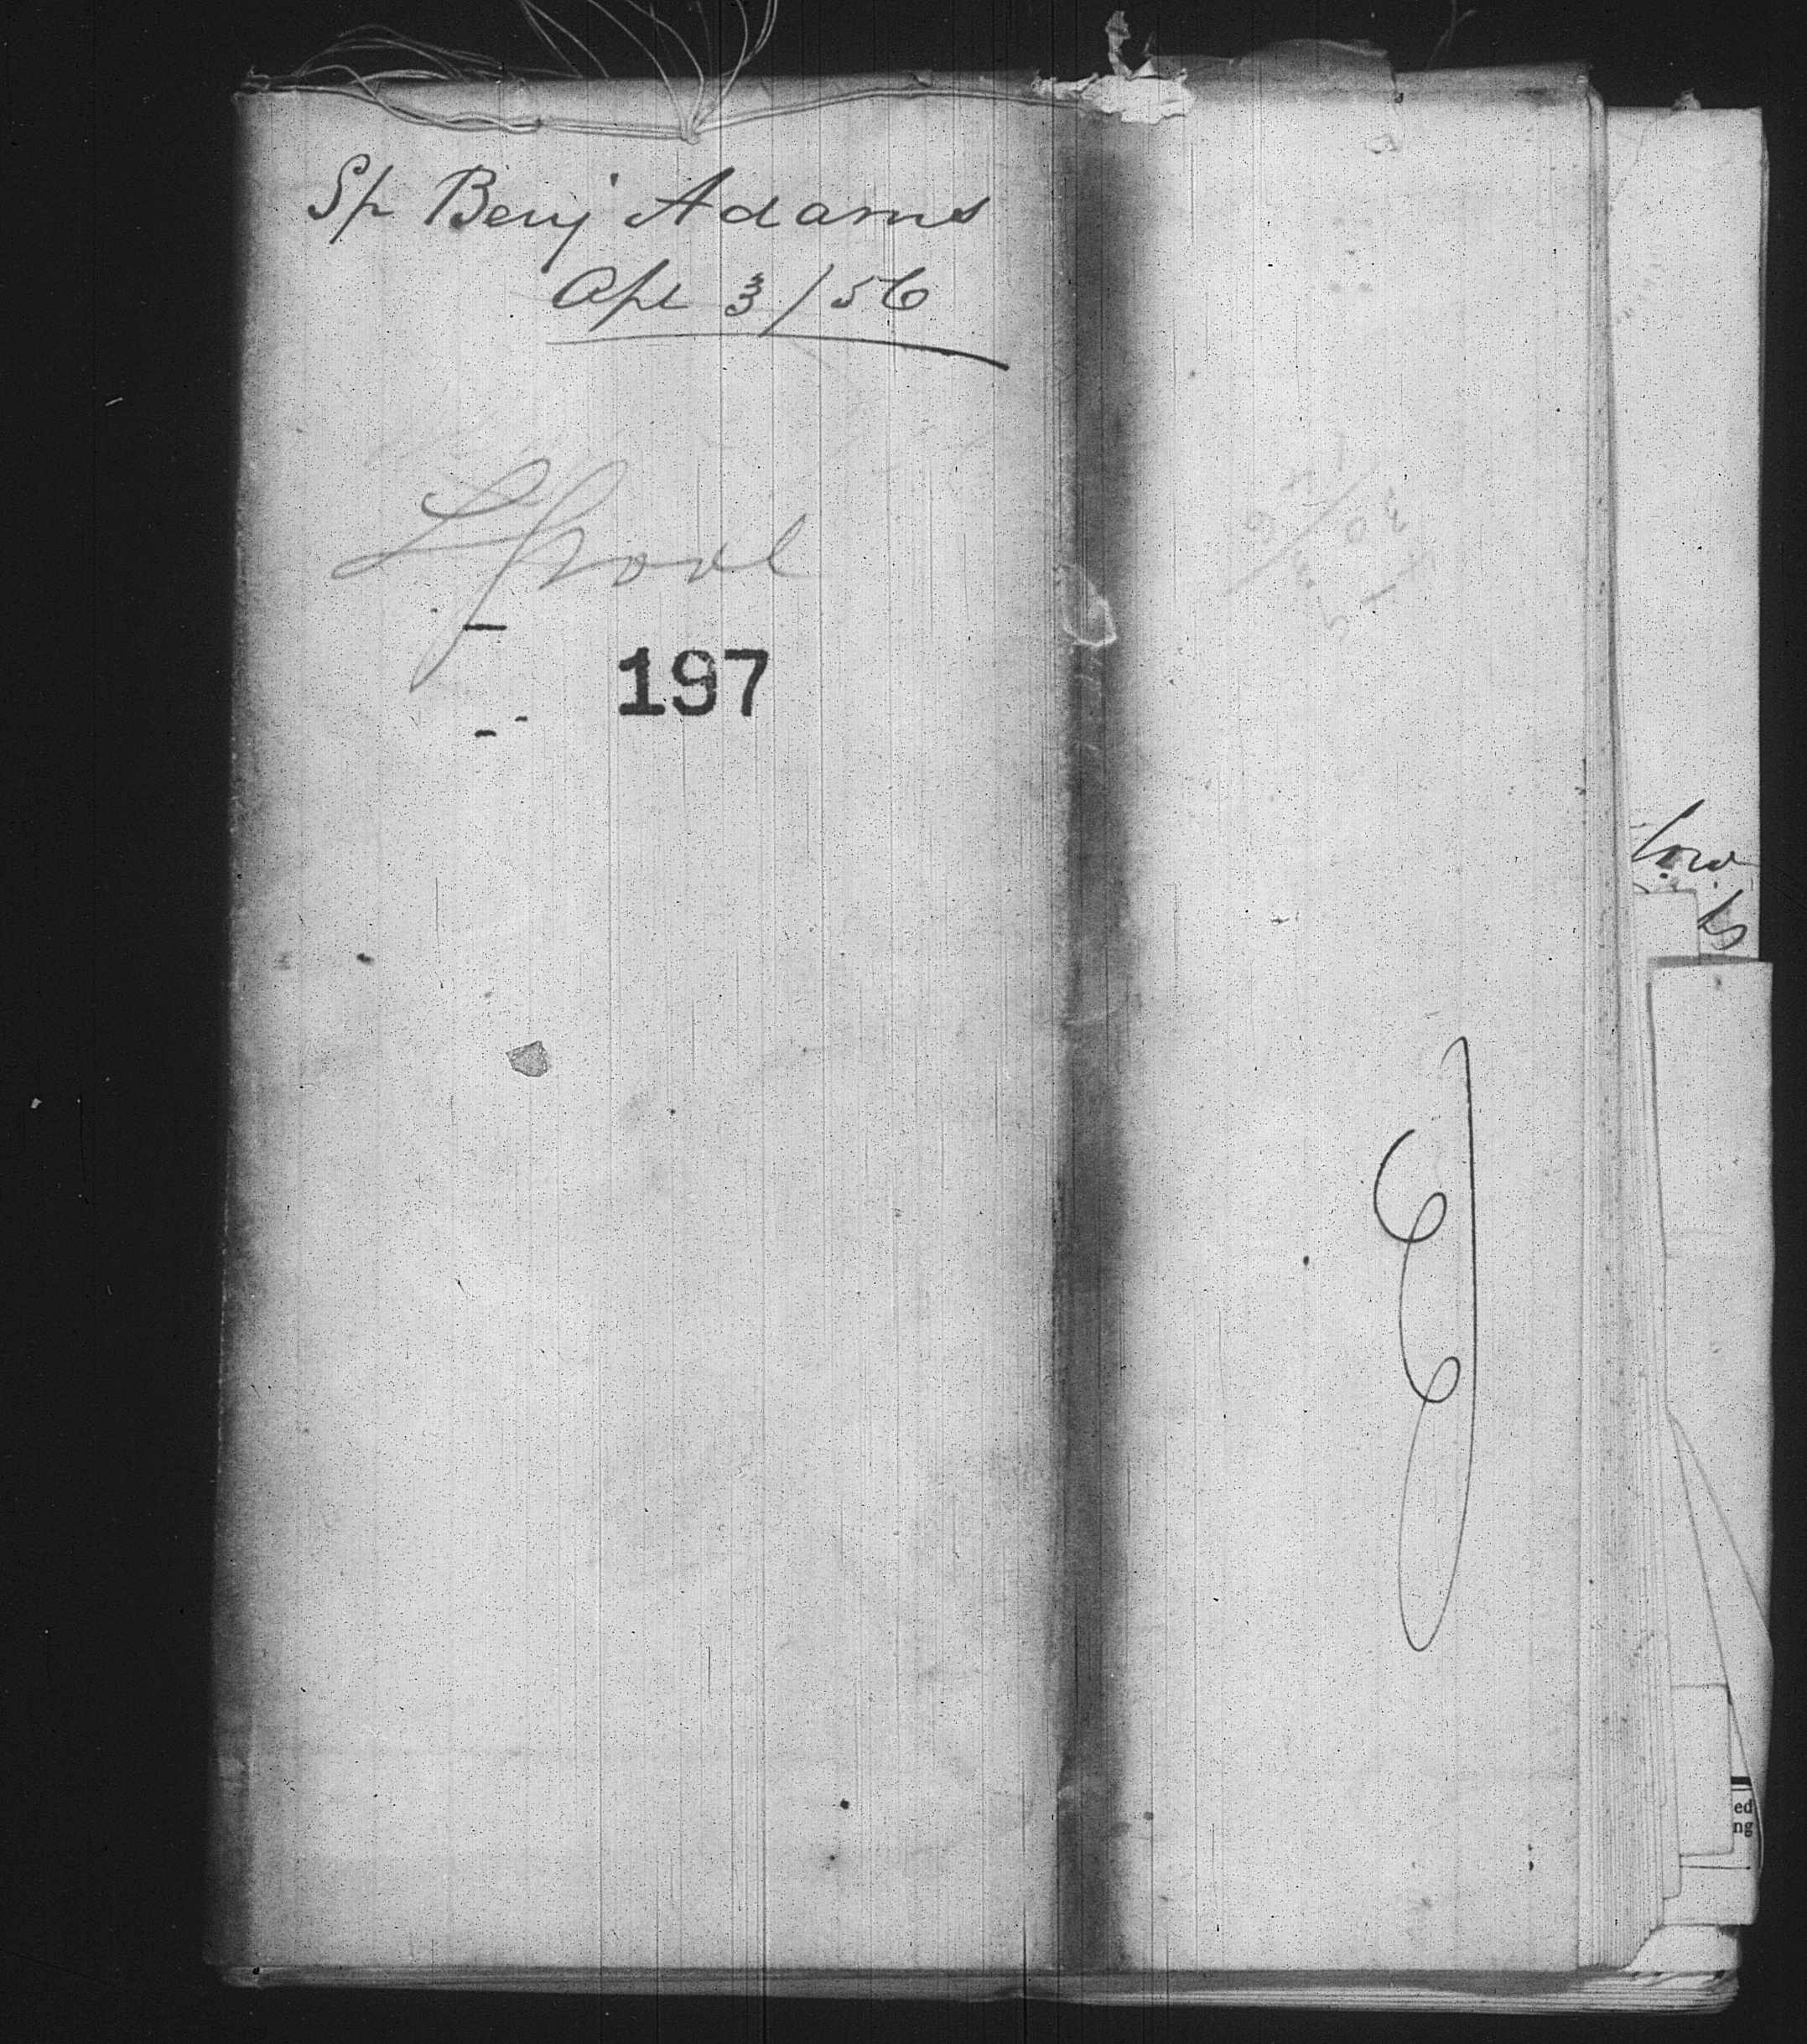 Sp Benj Adams
Apl 3/56
L'pool
197
Low
ed
ng